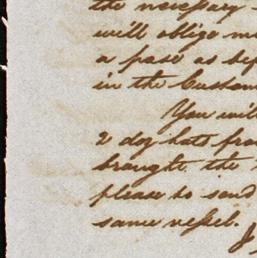 the necessary
will oblige me
a pase as bef
in the Custom
You will
2 doz hats fro
brought the
please to send
same vessel.